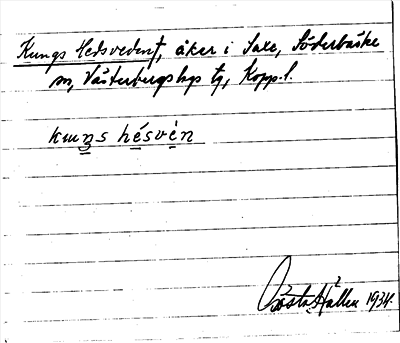 Kungs Hedsveden†, åker i Saxe, Söderbärke
sn, Västerbergslags tg, Kopp.l.
kuŋs hésvèn
Gösta Hallen 1934.